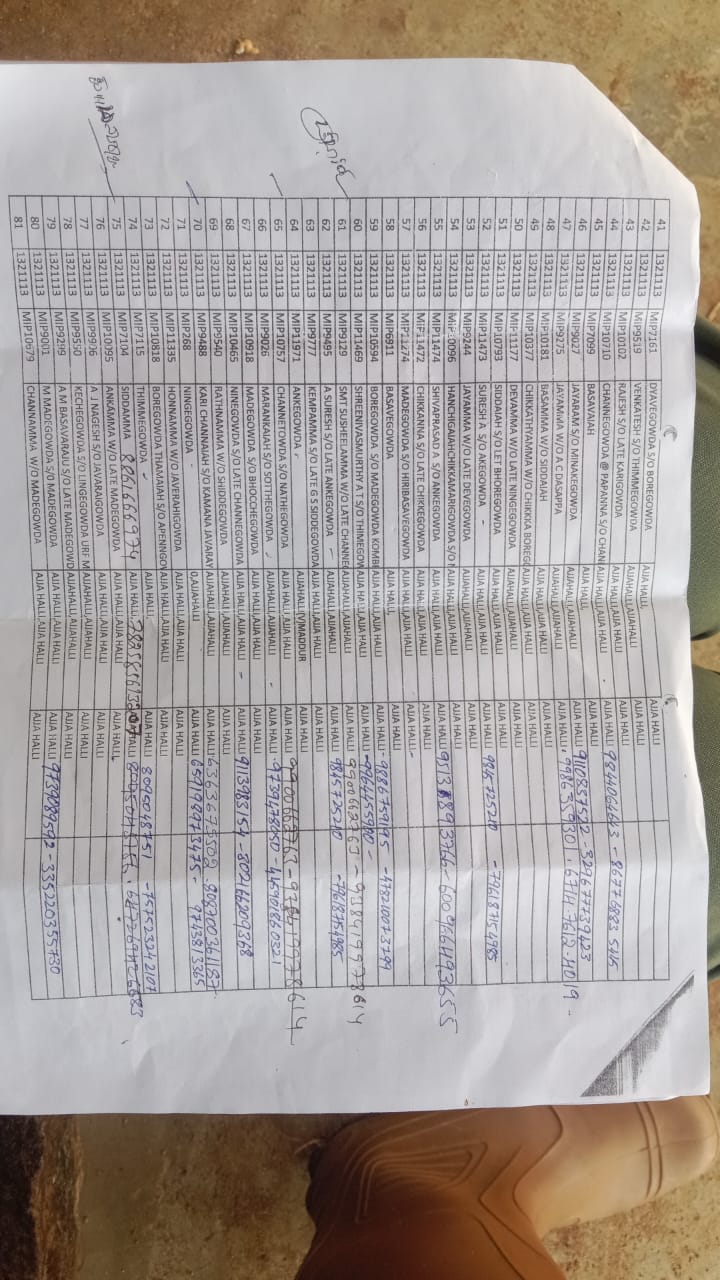 41 1321113 MIP7161 DYAVEGOWDA S/O BOREGOWDA AIJA HALLI, AIJA HALLI
42 1321113 MIP9519 VENKATESH S/O THIMMEGOWDA AIJAHALLI,AIJAHALLI AIJA HALLI
43 1321113 MIP10102 RAJESH S/O LATE KARIGOWDA AIJAHALLI,AIJAHALLI AIJA HALLI
44 1321113 MIP10710 CHANNEGOWDA @ PAPANNA S/O CHAN AIJA HALLI,AIJA HALLI AIJA HALLI 9844064643 - 867768835445
45 1321113 MIP7099 BASAVAIAH AIJA HALLI, AIJA HALLI
46 1321113 MIP9027 JAYARAM S/O MINAKEGOWDA AIJAHALLI,AIJAHALLI AIJA HALLI 9110837522 - 329677739423
47 1321113 MIP9275 JAYAMMA W/O A C DASAPPA AIJAHALLI,AIJAHALLI AIJA HALLI 9986359301 . 6714 7612 4019
48 1321113 MIP10181 BASAMMA W/O SIDDAIAH AIJA HALLI,AIJA HALLI AIJA HALLI
49 1321113 MIP10377 CHIKKATHYAMMA W/O CHIKKKA BOREG AIJA HALLI,AIJA HALLI AIJA HALLI
50 1321113 MIP11177 DEVAMMA W/O LATE NINGEGOWDA AIJAHALLI,AIJAHALLI AIJA HALLI
51 1321113 MIP10793 SIDDAIAH S/O LET BHOREGOWDA AIJA HALLI,AIJA HALLI AIJA HALLI
52 1321113 MIP11473 SURESH A S/O AKEGOWDA - AIJA HALLI,AIJA HALLI AIJA HALLI 9845725210 - 796187154985
53 1321113 MIP9244 JAYAMMA W/O LATE DEVEGOWDA AIJAHALLI,AIJAHALLI AIJA HALLI
54 1321113 HANCHIGAIAHCHIKKAMARIGOWDA S/O AIJA HALLI,AIJA HALLI AIJA HALLI
55 1321113 MIP11474 SHIVAPRASAD A S/O ANKEGOWDA AIJA HALLI,AIJA HALLI AIJA HALLI
56 1321113 MIP11472 CHIKKANNA S/O LATE CHIKKEGOWDA AIJA HALLI,AIJA HALLI AIJA HALLI
57 1321113 MADEGOWDA S/O HIRIBASAVEGOWDA AIJA HALLI,AIJA HALLI AIJA HALLI
58 1321113 MIP6911 BASAVEGOWDA AIJA HALLI, AIJA HALLI
59 1321113 MIP10594 BOREGOWDA S/O MADEGOWDA KOMBI AIJA HALLI,AIJA HALLI AIJA HALLI 9886759195
60 1321113 MIP11469 SHREENIVASMURTHY A T S/O THIMEGOW AIJA HALLI,AIJA HALLI AIJA HALLI 9964255900 -
61 1321113 MIP9129 SMT SUSHEELAMMA W/O LATE CHANNE AIJAHALLI,AIJAHALLI AIJA HALLI 9900662763 - 938419978614
62 1321113 MIP9495 A SURESH S/O LATE ANKEGOWDA - AIJAHALLI,AIJAHALLI AIJA HALLI 9845725210 - 796187154985
63 1321113 MIP9777 KEMPAMMA S/O LATE G S SIDDEGOWDA AIJA HALLI,AIJA HALLI AIJA HALLI
64 1321113 MIP11971 ANKEGOWDA AIJAHALLI (V)MADDUR AIJA HALLI
65 1321113 MIP10757 CHANNETOWDA S/O NATHEGOWDA AIJA HALLI,AIJA HALLI AIJA HALLI
66 1321113 MIP9026 MARANKAIAH S/O SOITHEGOWDA AIJAHALLI,AIJAHALLI AIJA HALLI 9739478050
67 1321113 MIP10918 MADEGOWDA S/O BHOCCHEGOWDA AIJA HALLI,AIJA HALLI AIJA HALLI
68 1321113 MIP10465 NINEGOWDA S/O LATE CHANNEGOWDA AIJA HALLI,AIJA HALLI AIJA HALLI 9113983154 - 802166209368
69 1321113 MIP9540 RATHNAMMA W/O SHIDDEGOWDA AIJAHALLI,AIJAHALLI AIJA HALLI 808700361187
70 1321113 MIP9488 KARI CHANNAIAH S/O KAMANA JAVARAY AIJAHALLI,AIJAHALLI AIJA HALLI 9743813365
71 1321113 MIP268 NINGEGOWDA 0,AIJAHALLI AIJA HALLI
72 1321113 MIP11335 HONNAMMA W/O JAVERAHIGOWDA AIJA HALLI,AIJA HALLI AIJA HALLI
73 1321113 MIP10818 BOREGOWDA THAMAIAH S/O APENNGOV AIJA HALLI,AIJA HALLI AIJA HALLI
74 1321113 MIP7115 THIMMEGOWDA AIJA HALLI, AIJA HALLI 8095048751 - 757523242107
75 1321113 MIP7104 SIDDAMMA AIJA HALLI, AIJA HALLI
76 1321113 MIP10095 ANKAMMA W/O LATE MADEGOWDA AIJA HALLI,AIJA HALLI AIJA HALLI
77 1321113 MIP9906 A J NAGESH S/O JAVARAIGOWDA AIJA HALLI,AIJA HALLI AIJA HALLI
78 1321113 MIP9550 KECHEGOWDA S/O LINGEGOWDA URF M AIJAHALLI,AIJAHALLI AIJA HALLI
79 1321113 MIP9299 A M BASAVARAJU S/O LATE MADEGOWD AIJAHALLI,AIJAHALLI AIJA HALLI
80 1321113 MIP9001 M MADEGOWDA S/O MADEGOWDA AIJA HALLI,AIJA HALLI AIJA HALLI 9739089592 - 335220355730
81 1321113 MIP10679 CHANNAMMA W/O MADEGOWDA AIJA HALLI,AIJA HALLI AIJA HALLI